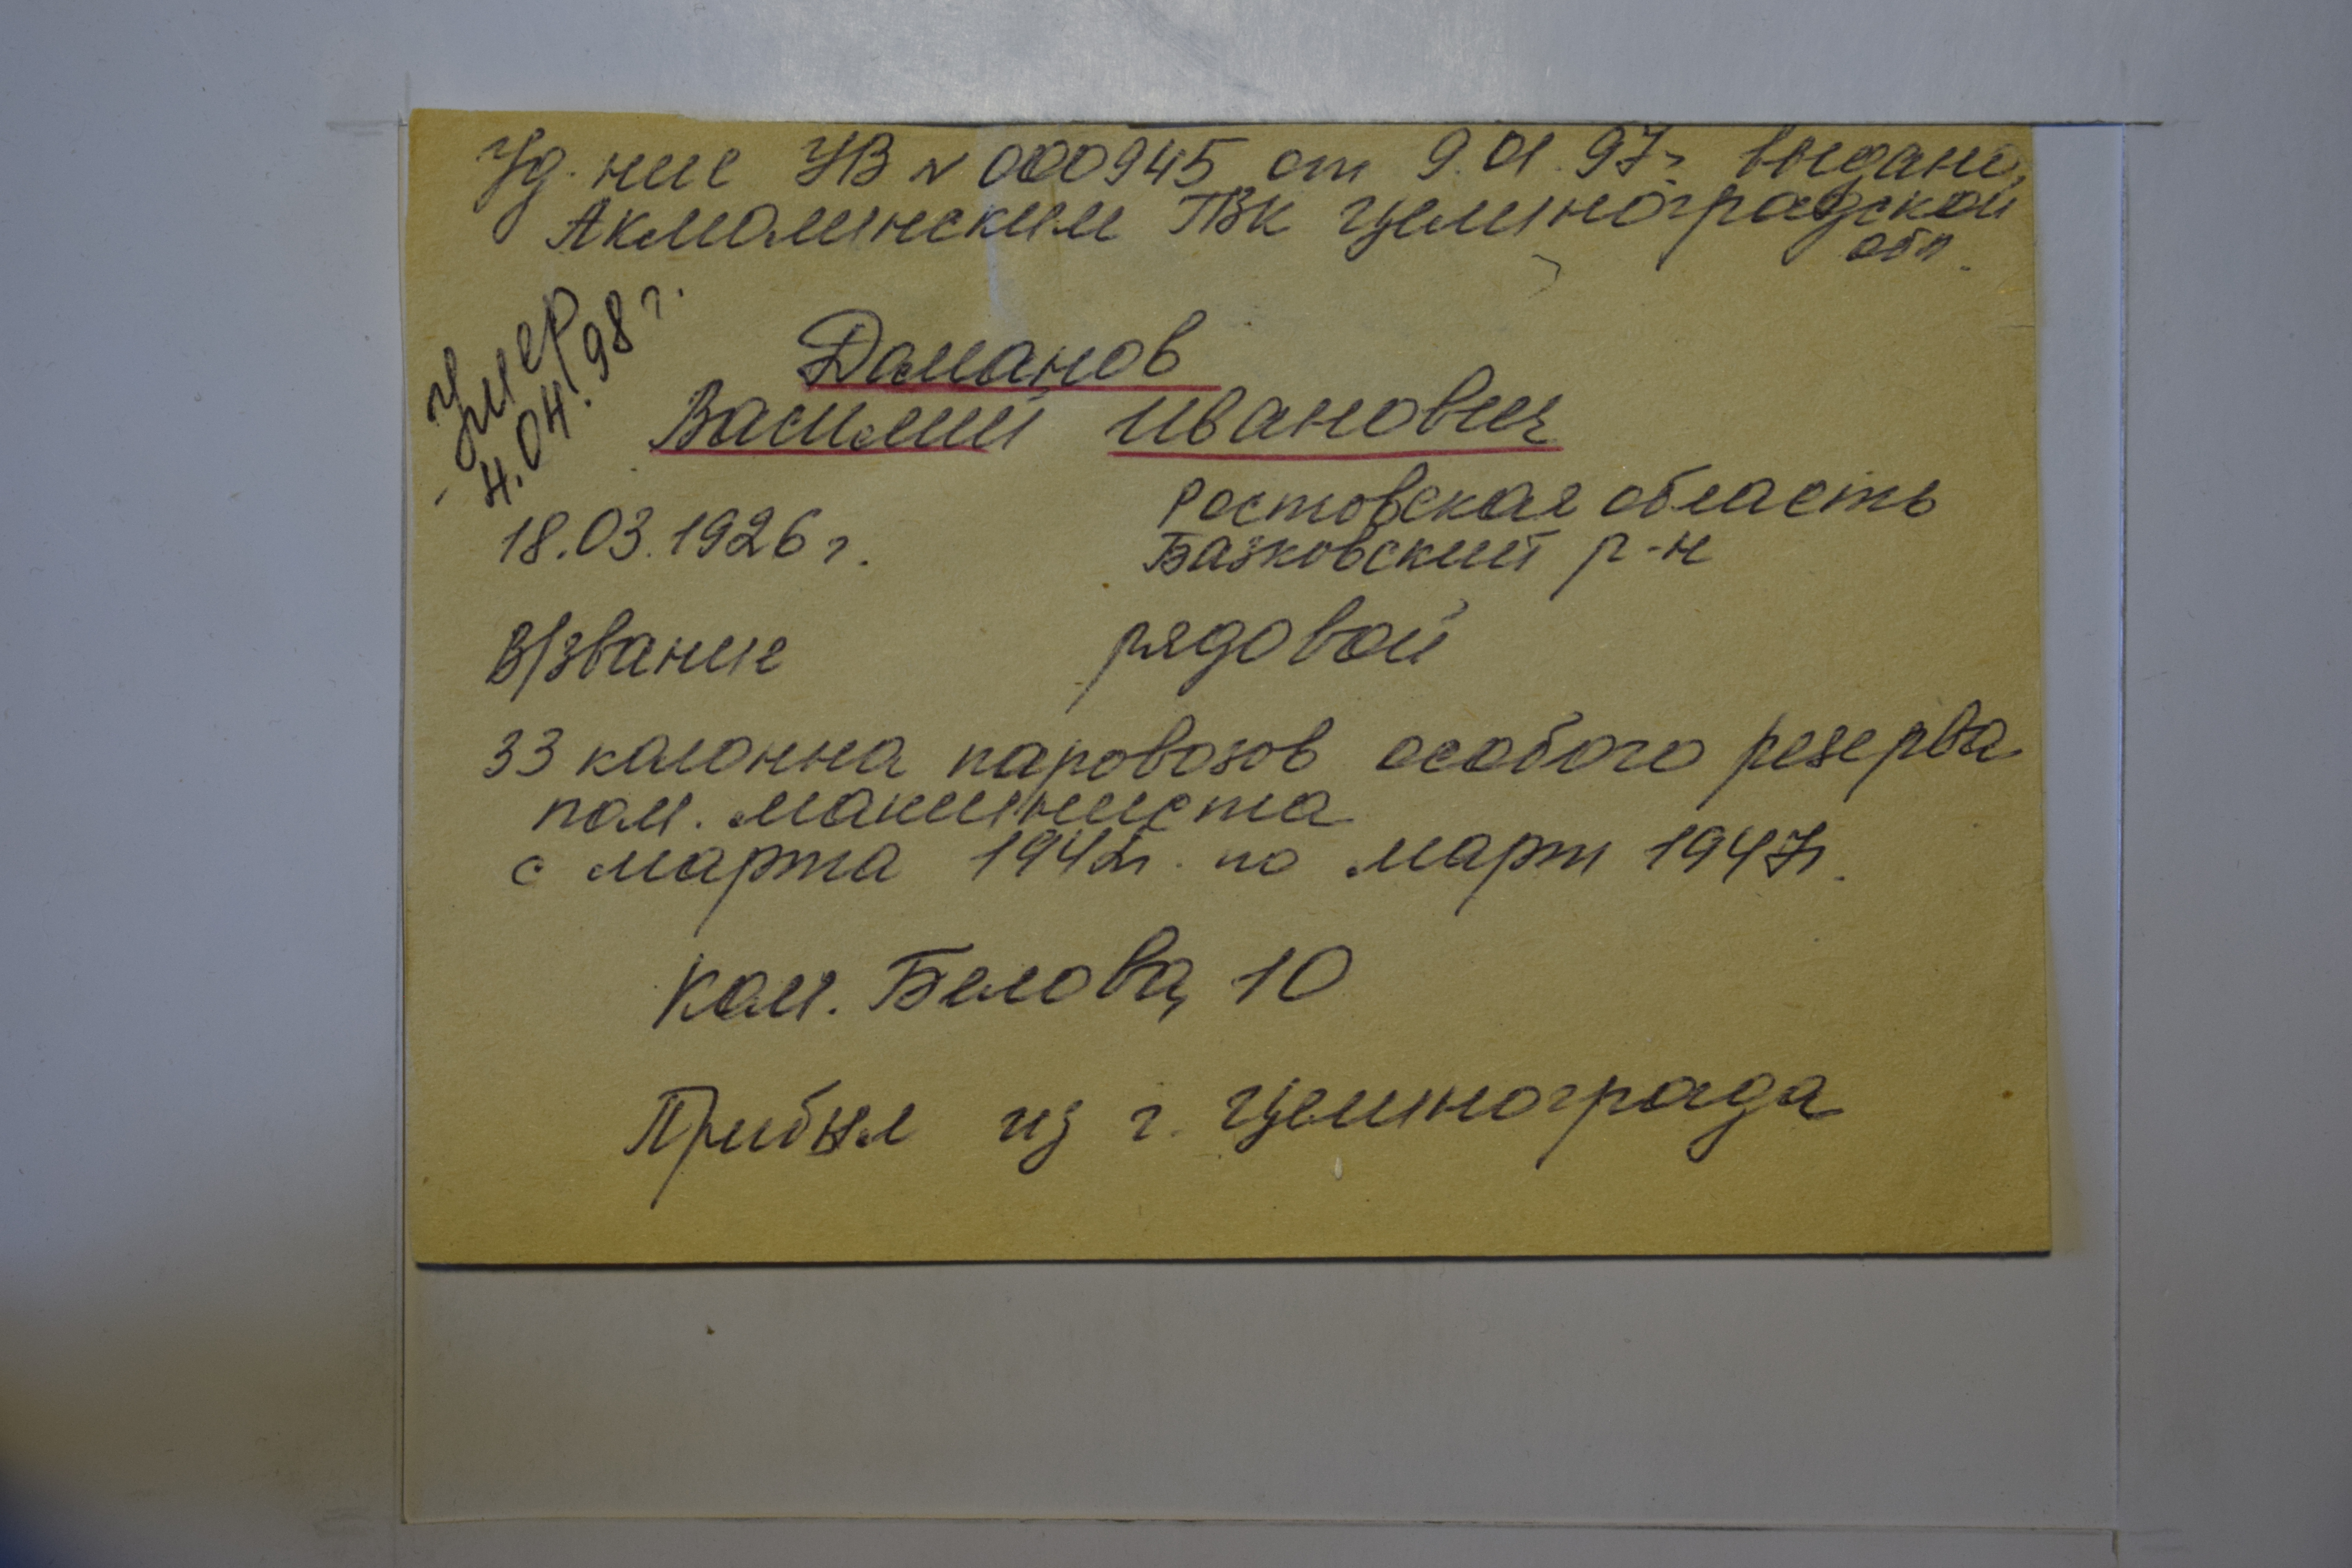 Уд. ние УВ № 000945 от 9.01.97г. выдано,
Акмолинским ГВК Целиноградской
обл.
Умер
4.04.98 г.
Доманов
Василий Иванович
18.03.1926 г.
Ростовская область
Базковский р-н
В/звание рядовой
33 колонна паровозов особого резерва
пом. машиниста
с марта 1942г. по март 1947г.
Ком. Белова, 10
Прибыл из г. Целинограда